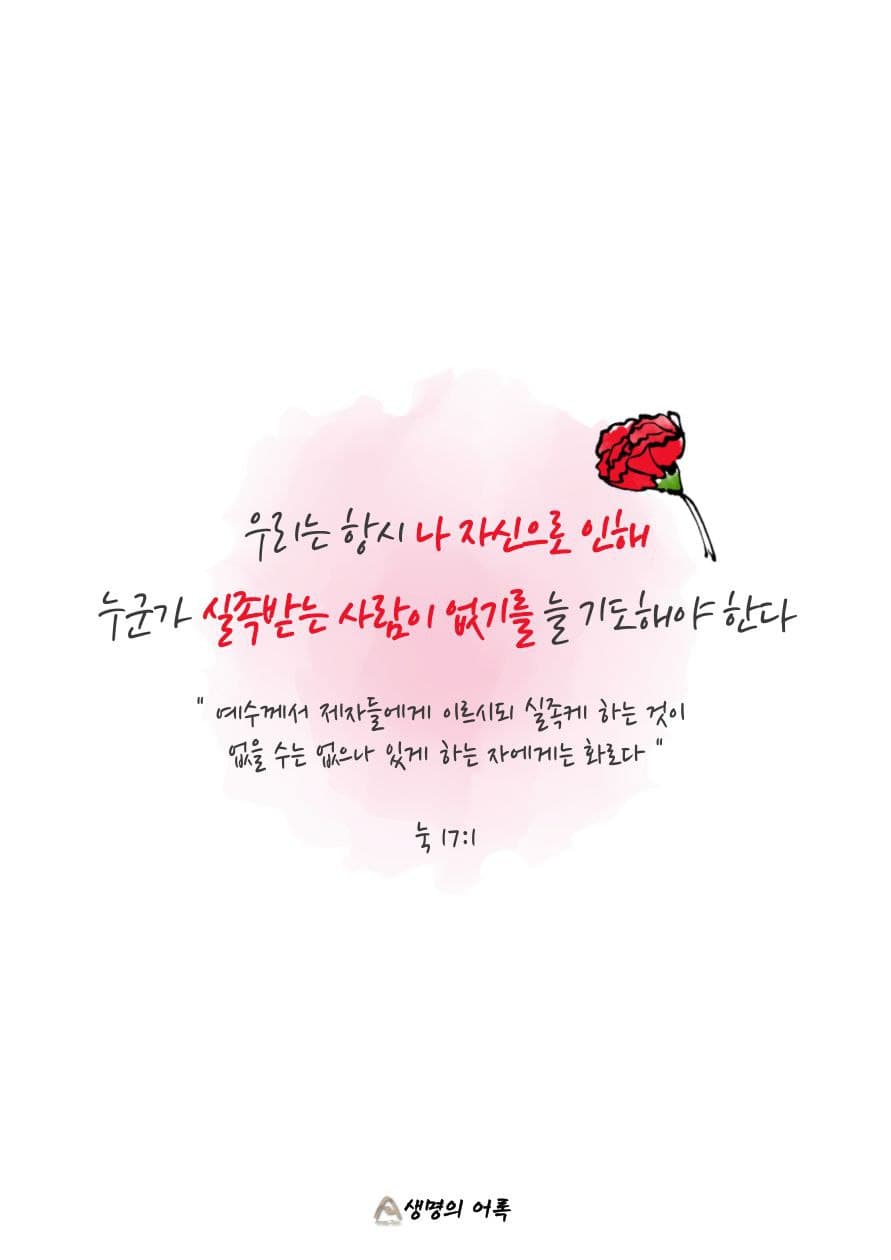 우리는 항시 나 자신으로 인해
누군가 실족받는 사람이 없기를 늘 기도해야 한다
" 예수께서 제자들에게 이르시되 실족케 하는 것이
없을 수는 없으나 있게 하는 자에게는 화로다 "
눅 17:1
생명의 어록